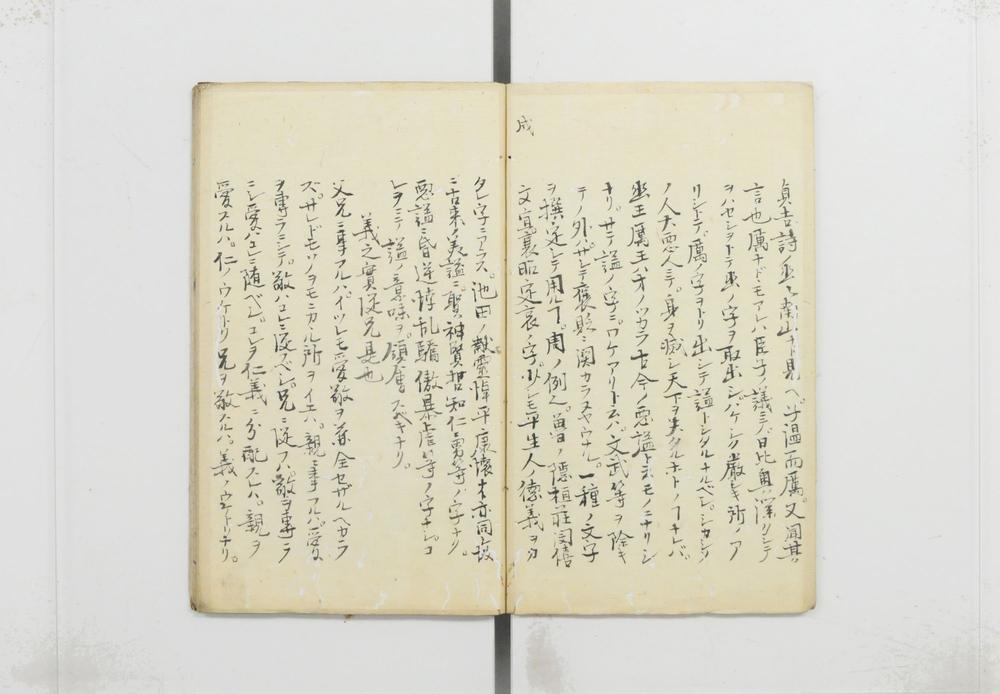 成
貞吉詩幽々南山ト見ヘ子温而厲。又聞其
言也厲ナドモアレハ臣子ノ議ニハ日比奥深クシテ
ヲハセシヲトテ幽ノ字ヲ取出シハゲシク嚴シキ所ノア
リシトテ厲ノ字ヲトリ出シテ謚トシタルナルベシ。シカシ
ノ人大悪人ニテ。身ヲ滅シ天下ヲ失タルホトノフナレバ。
幽王厲王ハオノツカラ古今ノ悪謚トスモノニナリシ
ナリ。サテ謚ノ字ニ。ワケアリト云ハ。文武等ヲ除キ
テノ外ハサシテ褒貶ニ関カラヌヤウナル。一種ノ文字
ヲ撰定シテ用ルフ。周ノ例也。魯ノ隠桓莊閔僖
文宣襄昭定哀ノ字。少シモ平生人ノ徳義ヲカ
タレ字ニアラス。池田ノ烈靈悼平康懐ナト亦同シ故
ニ古来ノ美謚ニ。聖神賢哲知仁勇等ノ字ナク。
悪謚ニ昏逆悖乱驕傲暴虐等ノ字ナシ。コ
レヲミテ謚ノ意味ヲ。領會スベキナリ。
義之實從兄是也
父兄ニ事フルハ。イツレモ愛敬ヲ兼全セザルヘカラ
ズ。サレドモソノヲモニカル所ヲイエハ。親ニ事フルハ。愛
ヲ專ラニシテ。敬ハコレニ従フベシ。兄ニ従フハ。敬ヲ專ラ
ニシ愛ハコレニ随ベシ。コレヲ仁義ニ分配スレハ。親ヲ
愛スルハ。仁ノウケトリ兄ヲ敬スルハ。義ノウケトリナリ。